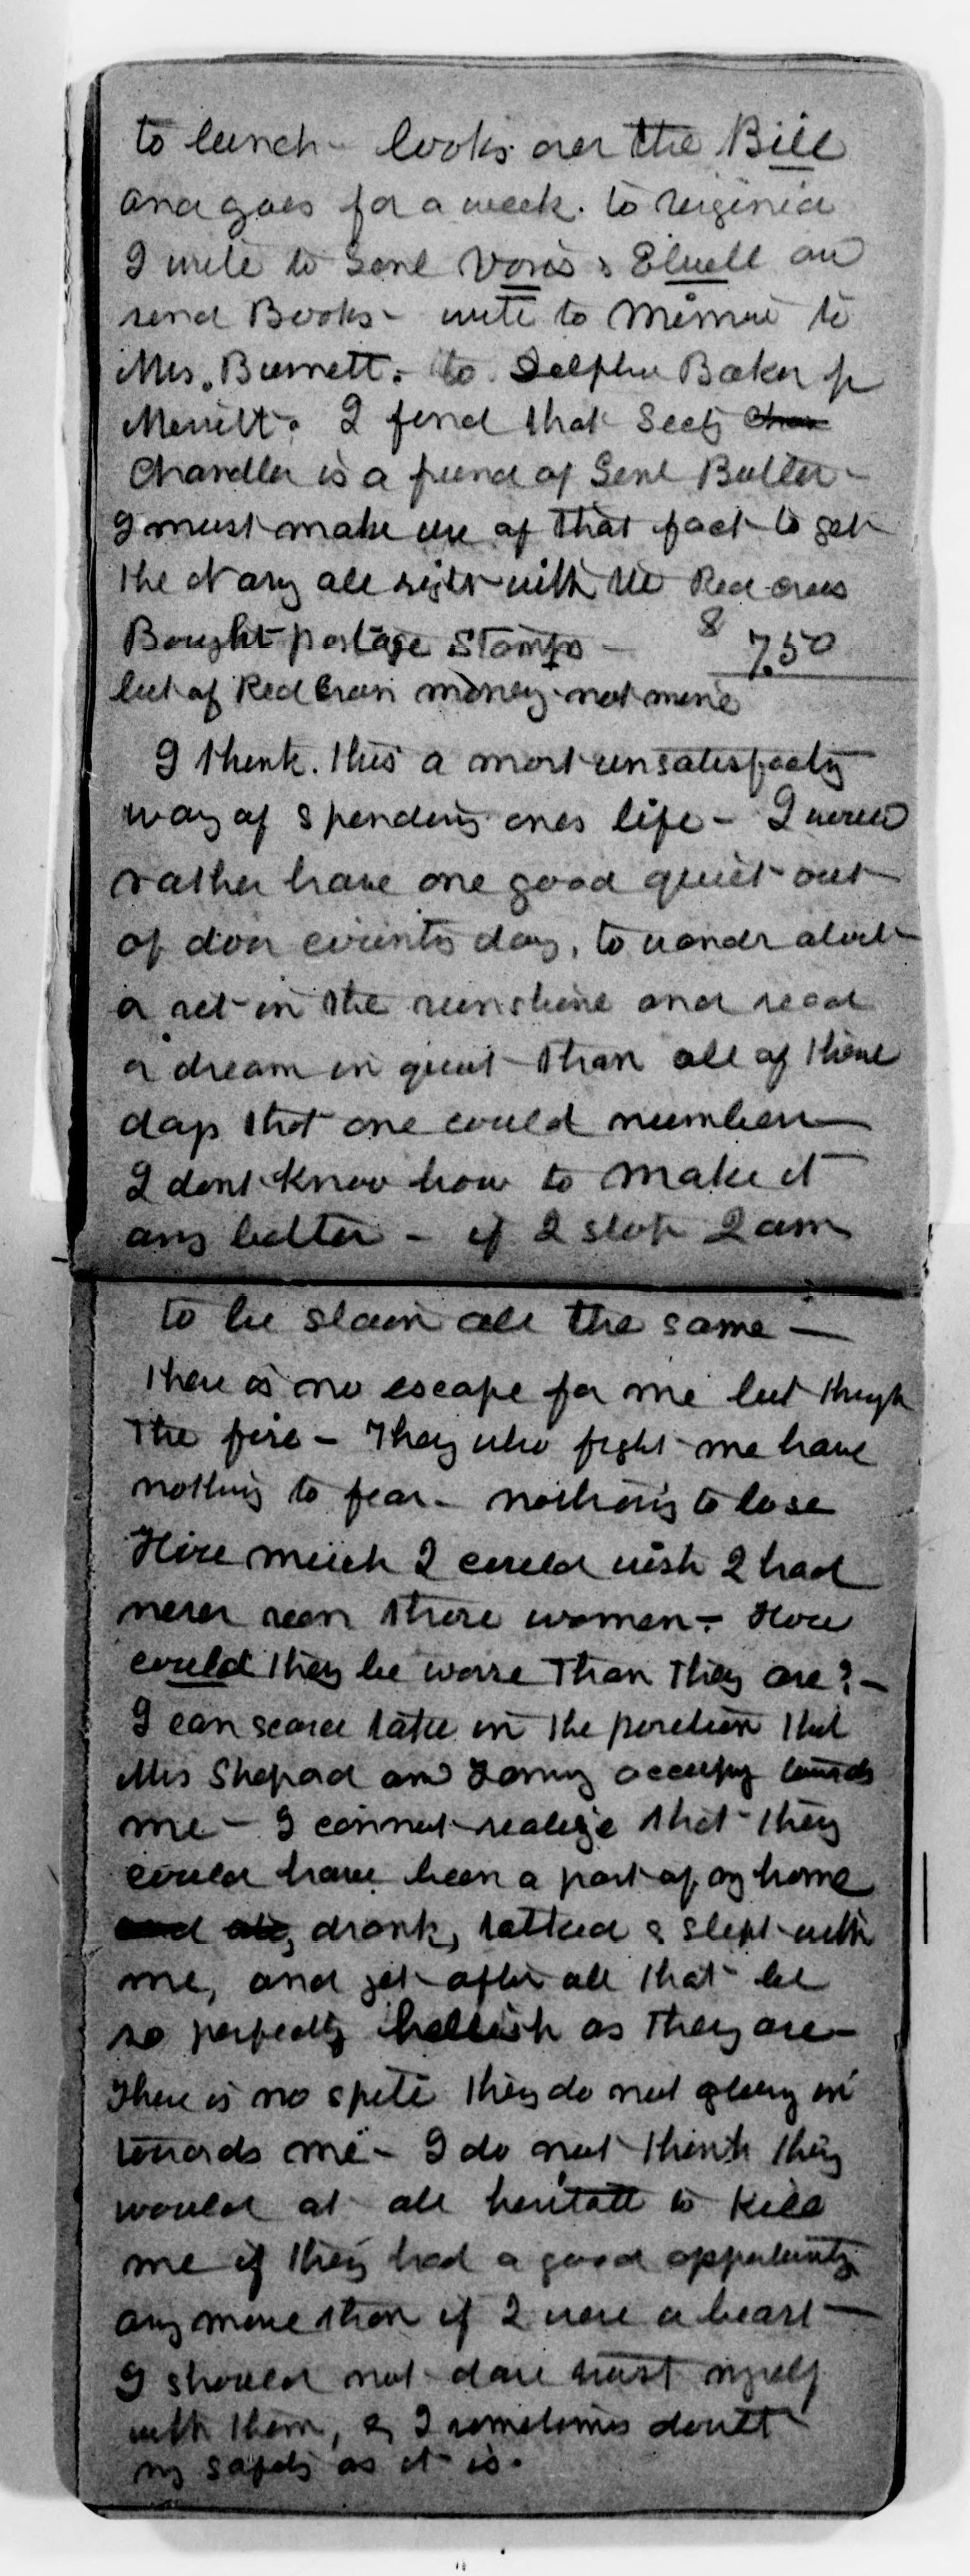 to lunch - looks over the Bill
and goes for a week. to Virginia
I write to Genl Voris & Elwell and
send Books - write to Mimmie to
Mrs. Burnett. to Delphine Baker for
Merritt. I find that Secty
Chandler is a friend of Genl Butler -
I must make use of that fact to get
the Navy all right with the Red cross
Bought postage Stamps - $ 7.50
but of Red Cross money not mine
I think. this a most unsatisfacty
way of spending ones life - I would
rather have one good quiet out
of door country day, to wander about
or set in the sunshine and read
or dream in quiet than all of these
days that one could number -
I dont know how to make it
any better - if I stop I am
to be slain all the same -
There is no escape for me but through
the fire - They who fight me have
nothing to fear - nothing to lose
How much I could wish I had
never seen those women - How
could they be worse than they are? -
I can scarce take in the position that
Mrs Shepard and Fanny occupy towards
me - I cannot realize that they
could have been a part of my home
drank, talked & slept with
me, and yet after all that be
so perfectly hellish as they are -
There is no spite they do not glory in
towards me - I do not think they
would at all hesitate to kill
me if they had a good opportunity
any more than if I were a beast -
I should not dare trust myself
with them, & I sometimes doubt
my safety as it is.